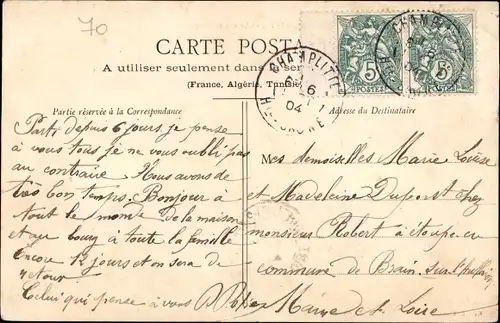 70
CARTE POSTA
A utiliser seulement dans le ser
(France, Algérie, Tunisie
CHAMPLITTE
6
04
Hte SAONE
5
POSTES
5
POSTES
CHAMP
6
04
Partie réservée à la Correspondance
Adresse du Destinataire
Parti depuis 6 jours je pense
à vous tous je ne vous oubli pas
au contraire Nous avons de
très bon temps. Bonjour à
tout le monde De la maison
et au bourg à toute la famille
Encore 12 jours et on sera de
retour
Celui qui pense à vous
Mes demoiselles Marie Louise
et Madeleine Duport chez
monsieur Robert à étoupe en
commune de Brain sur l'
Maine et Loire